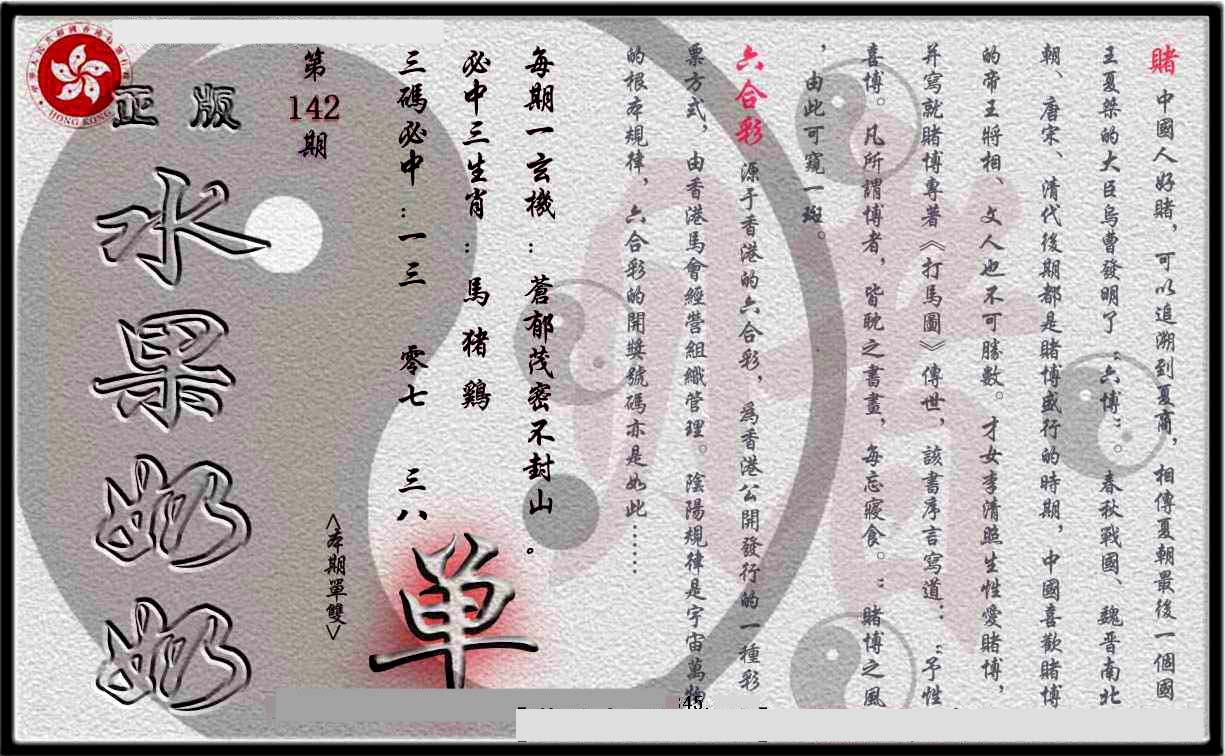 賭 中國人好賭，可以追溯到夏商，相傳夏朝最後一個國
王夏桀的大臣烏曹發明了“六博”。春秋戰國、魏晋南北
朝、唐宋、清代後期都是賭博盛行的時期，中國喜歡賭博
的帝王將相、文人也不可勝數。才女李清照生性愛賭博，
并寫就賭博專著《打馬圖》傳世，該書序言寫道：“予性
喜博。凡所謂博者，皆耽之書畫，每忘寢食。”賭博之風
，由此可窺一斑。
六合彩 源于香港的六合彩，爲香港公開發行的一種彩
票方式，由香港馬會經營組織管理。陰陽規律是宇宙萬物
的根本規律，六合彩的開獎號碼亦是如此……
每期一玄機：蒼郁茂密不封山。
必中三生肖：馬 猪 鷄
三碼必中：一三 零七 三八
單
<本期單雙>
第
142
期
正版
水果奶奶
HONG KONG
45